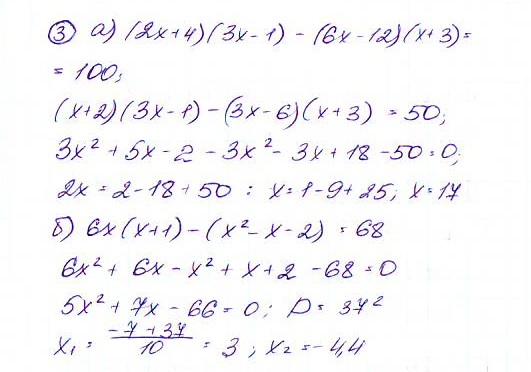 ③ а) (2x+4)(3x-1) - (6x-12)(x+3) =
= 100;
(x+2)(3x-1) - (3x-6)(x+3) = 50;
3x² + 5x - 2 - 3x² - 3x + 18 - 50 = 0;
2x = 2 - 18 + 50 : x = 1 - 9 + 25; x = 17
б) 6x(x+1) - (x² - x - 2) = 68
6x² + 6x - x² + x + 2 - 68 = 0
5x² + 7x - 66 = 0; D = 37²
x₁ = (-7 + 37)/10 = 3; x₂ = -4,4